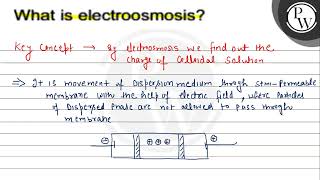 What is electroosmosis?
PW
Key Concept → By electrosmosis we find out the
charge of Colloidal Solution
⇒ It is movement of Dispersion medium through semi-permeable
membrane with the help of electric field, where Particles
of Dispersed Phase are not allowed to pass through
membrane
⊕ ⊕ ⊕ ⊕ ⊖